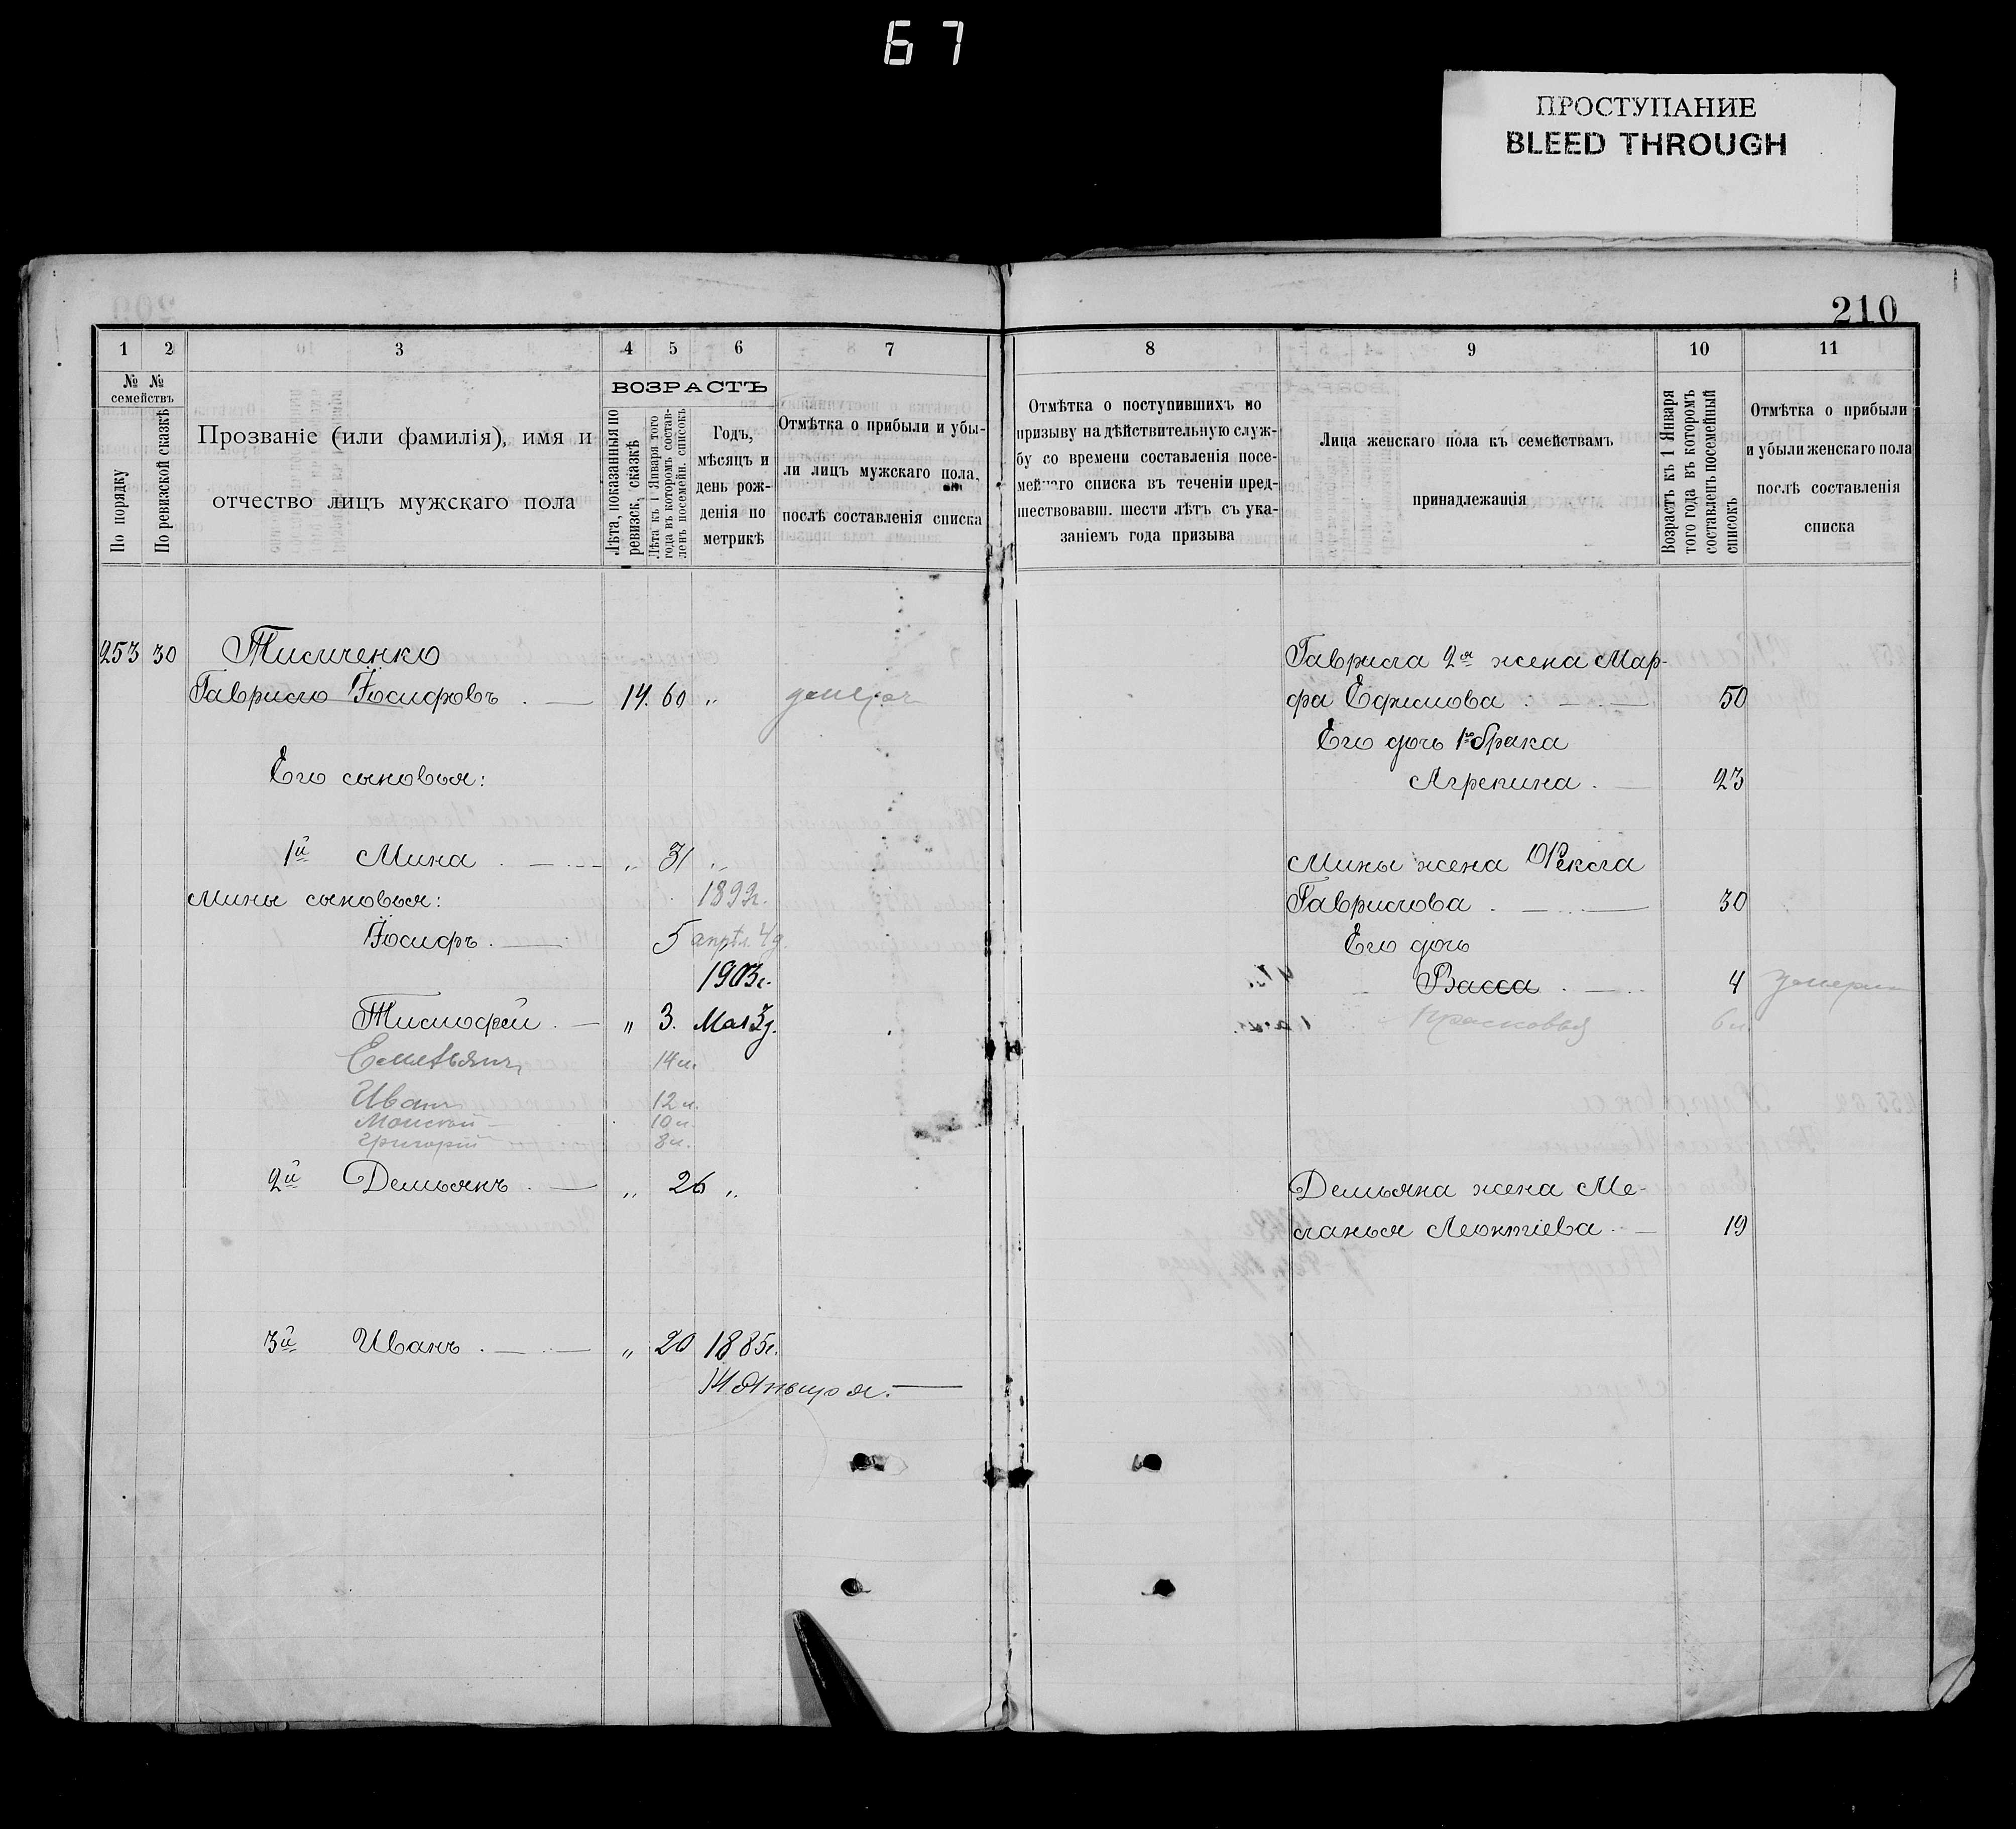 67
ПРОСТУПАНИЕ
BLEED THROUGH
210
1 2 3 4 5 6 7
№ № семействъ
По порядку
По ревизской сказкѣ
Прозваніе (или фамилія), имя и
отчество лицъ мужскаго пола
ВОЗРАСТЪ
Лѣта, показанныя по
ревизск. сказкѣ
Лѣта къ 1 Января того
года въ которомъ состав-
ленъ посемейн. списокъ
Годъ,
мѣсяцъ и
день рож-
денія по
метрикѣ
Отмѣтка о прибыли и убы-
ли лицъ мужскаго пола,
послѣ составленія списка
8 9 10 11
Отмѣтка о поступившихъ по
призыву на дѣйствительную служ-
бу со времени составленія посе-
мейнаго списка въ теченіи пред-
шествовавш. шести лѣтъ съ ука-
заніемъ года призыва
Лица женскаго пола къ семействамъ
принадлежащія
Возрастъ къ 1 Января
того года въ которомъ
составленъ посемейный
списокъ
Отмѣтка о прибыли
и убыли женскаго пола
послѣ составленія
списка
253 30 Тисиченко
Гавріилъ Іосифовъ 14. 60 " умеръ
Его сыновья:
1й Мина " 31 "
Мины сыновья: 1899г.
Іосифъ 5 апрѣл. 4д.
1903г.
Тимофей " 3. Мая 3д.
Емельянъ 14 л.
Иванъ 12 л.
Моисей 10 л.
Григорій 8 л.
2й Демьянъ " 26 "
3й Иванъ " 20 1885г.
14 Января.
Гавріила 2я жена Мар-
фа Ефимова 50
Его дочь 1го брака
Агрепина 23
Мины жена Фекла
Гаврилова 30
Его дочь
Васса 4 умерла
Прасковья 6 л.
Демьяна жена Ме-
ланья Леонтіева 19